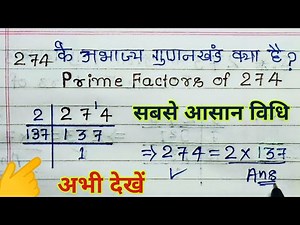 274 के अभाज्य गुणनखंड क्या है?
Prime Factors of 274
2 | 2 7 ¹4
137 | 1 3 7
1
सबसे आसान विधि
⇒ 274 = 2 × 137
✓ Ans
अभी देखें